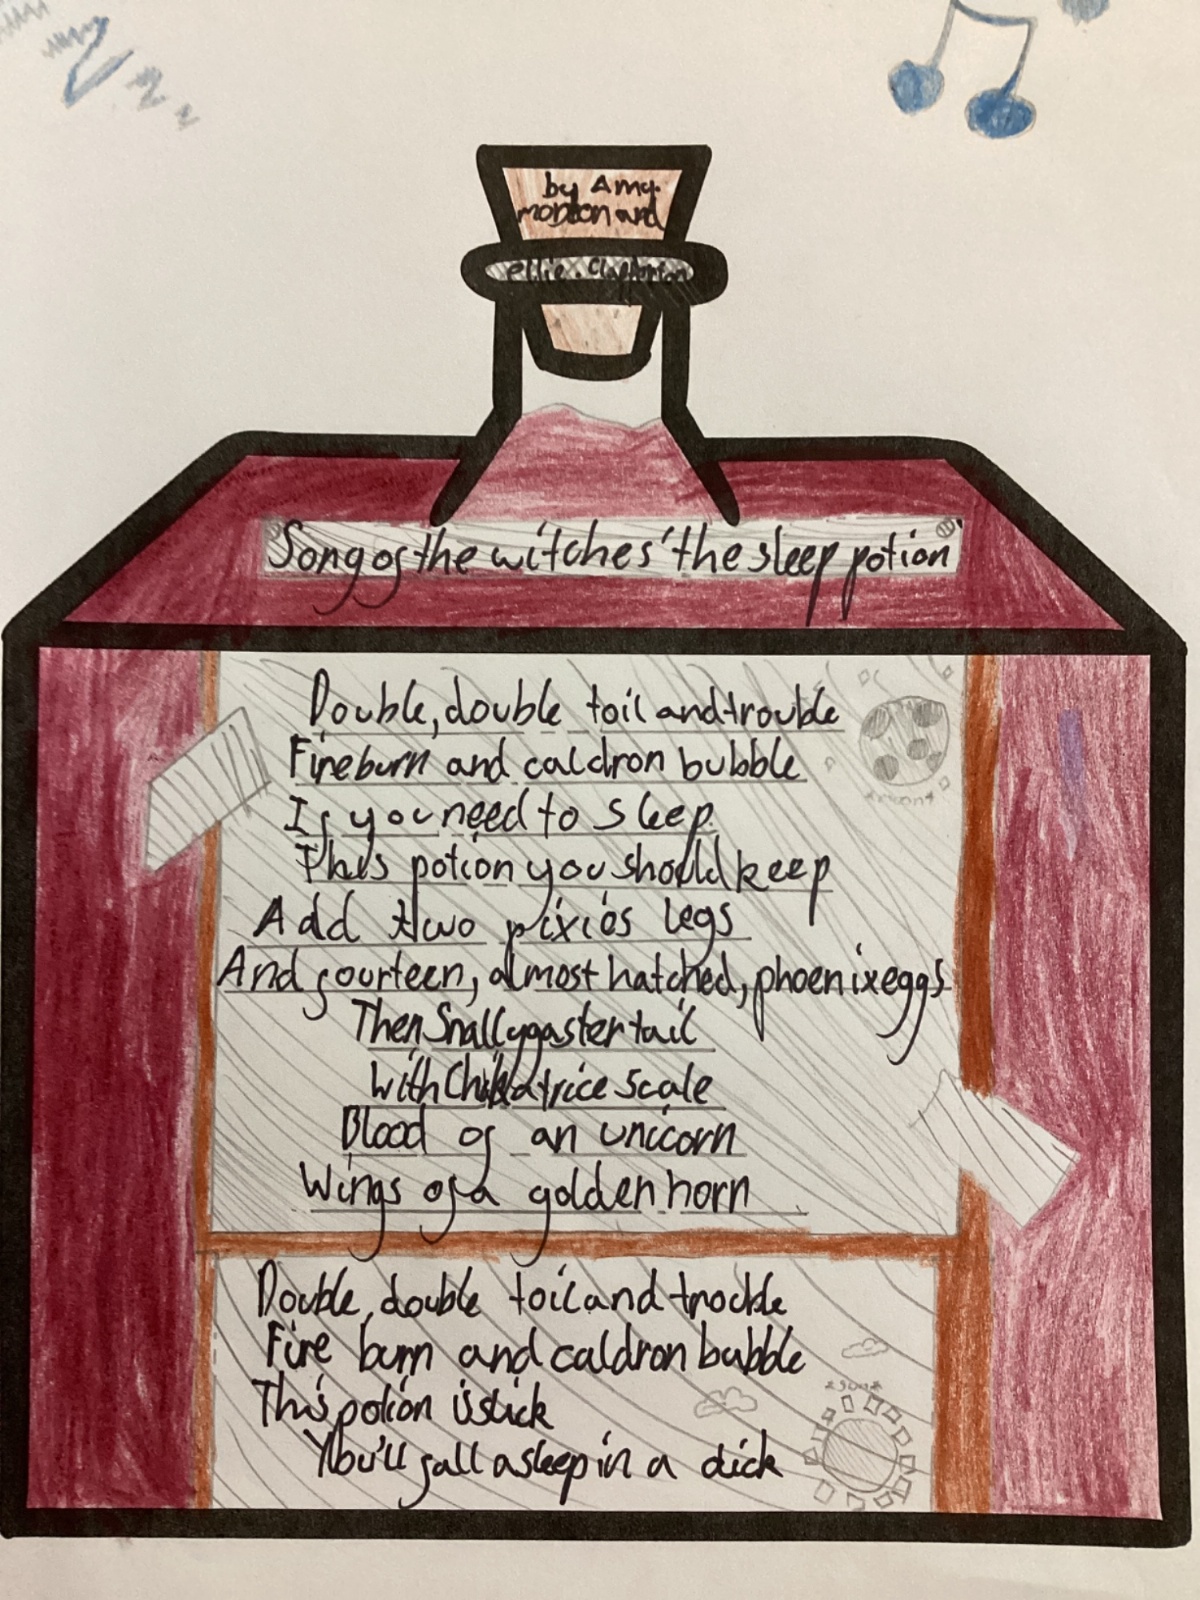 by Amy.
and
ellie.
Song of the witches' the sleep potion
Double, double toil and trouble
Fire burn and caldron bubble
If you need to sleep
This potion you should keep
Add two pixies legs
And fourteen, almost hatched, phoenix eggs
Then Snallygaster tail
With scale
Blood of an unicorn
Wings of a golden horn
Double, double toil and trouble
Fire burn and caldron bubble
This potion is slick
You'll fall asleep in a click